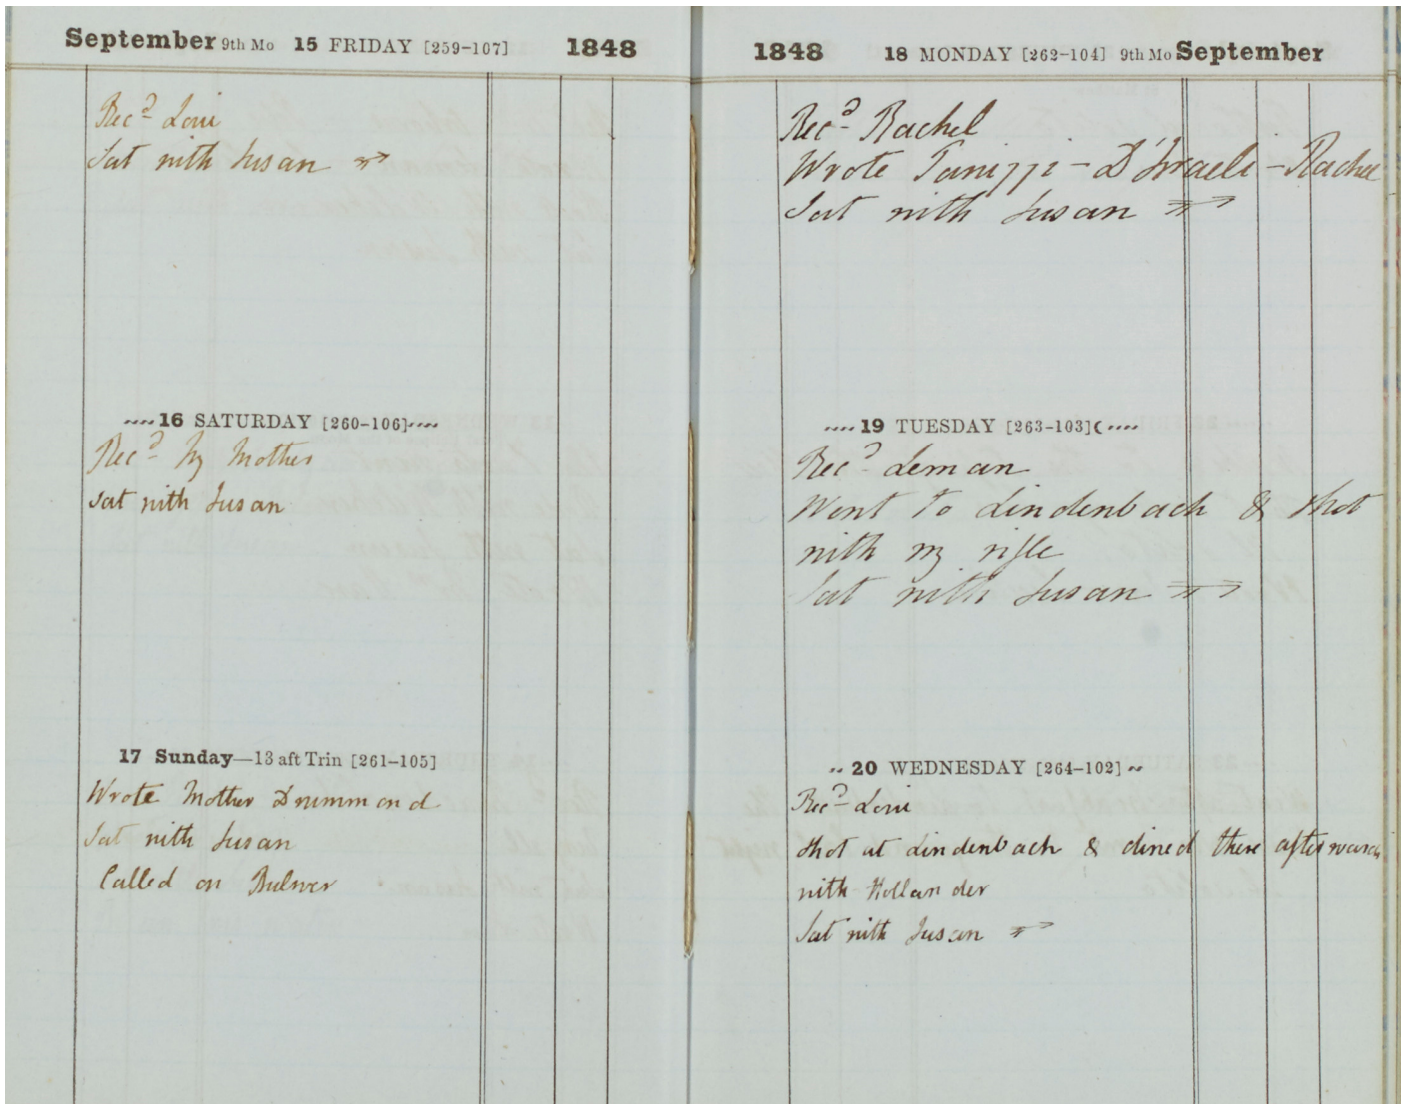 September 9th Mo 15 FRIDAY [259-107] 1848
Recd Loui
Sat with Susan
16 SATURDAY [260-106]
Recd My Mother
Sat with Susan
17 Sunday—13 aft Trin [261-105]
Wrote Mother Drummond
Sat with Susan
Called on Bulwer
1848 18 MONDAY [262-104] 9th Mo September
Recd Rachel
Wrote Panizzi - D'Israeli - Rachel
Sat with Susan
19 TUESDAY [263-103]
Recd Leman
Went to Lindenbach & shot
with my rifle
Sat with Susan
20 WEDNESDAY [264-102]
Recd Loui
shot at Lindenbach & dined there afterwards
with Hollander
Sat with Susan